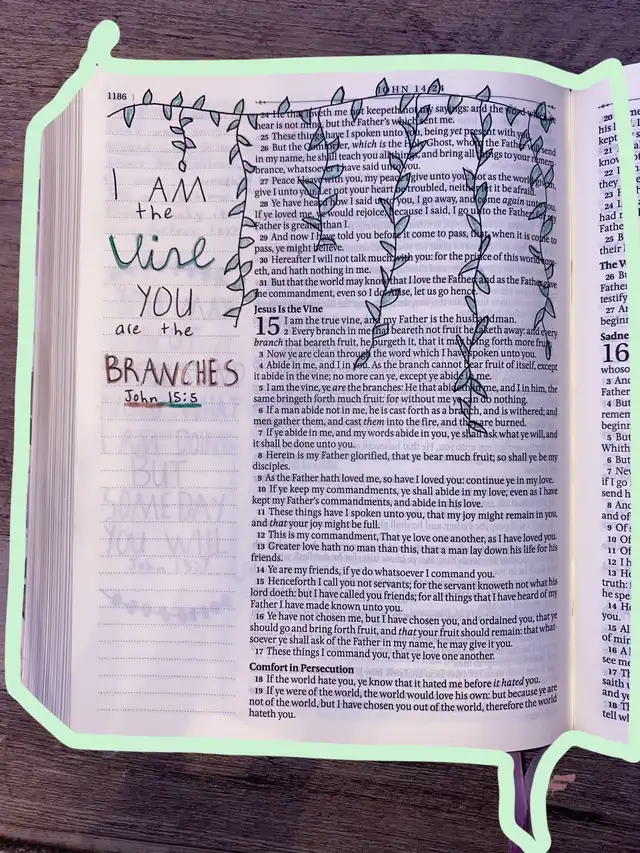 1186
JOHN 14/24
I AM
the
Vine
YOU
are the
BRANCHES
John 15:5
24 He that loveth me not keepeth not my sayings: and the word which ye
hear is not mine, but the Father's which sent me.
25 These things have I spoken unto you, being yet present with you.
26 But the Comforter, which is the Holy Ghost, whom the Father will send
in my name, he shall teach you all things, and bring all things to your remem-
brance, whatsoever I have said unto you.
27 Peace I leave with you, my peace I give unto you: not as the world giveth,
give I unto you. Let not your heart be troubled, neither let it be afraid.
28 Ye have heard how I said unto you, I go away, and come again unto you.
If ye loved me, ye would rejoice, because I said, I go unto the Father: for my
Father is greater than I.
29 And now I have told you before it come to pass, that, when it is come to
pass, ye might believe.
30 Hereafter I will not talk much with you: for the prince of this world com-
eth, and hath nothing in me.
31 But that the world may know that I love the Father; and as the Father gave
me commandment, even so I do. Arise, let us go hence.
Jesus Is the Vine
15 I am the true vine, and my Father is the husbandman.
2 Every branch in me that beareth not fruit he taketh away: and every
branch that beareth fruit, he purgeth it, that it may bring forth more fruit.
3 Now ye are clean through the word which I have spoken unto you.
4 Abide in me, and I in you. As the branch cannot bear fruit of itself, except
it abide in the vine; no more can ye, except ye abide in me.
5 I am the vine, ye are the branches: He that abideth in me, and I in him, the
same bringeth forth much fruit: for without me ye can do nothing.
6 If a man abide not in me, he is cast forth as a branch, and is withered; and
men gather them, and cast them into the fire, and they are burned.
7 If ye abide in me, and my words abide in you, ye shall ask what ye will, and
it shall be done unto you.
8 Herein is my Father glorified, that ye bear much fruit; so shall ye be my
disciples.
9 As the Father hath loved me, so have I loved you: continue ye in my love.
10 If ye keep my commandments, ye shall abide in my love; even as I have
kept my Father's commandments, and abide in his love.
11 These things have I spoken unto you, that my joy might remain in you,
and that your joy might be full.
12 This is my commandment, That ye love one another, as I have loved you.
13 Greater love hath no man than this, that a man lay down his life for his
friends.
14 Ye are my friends, if ye do whatsoever I command you.
15 Henceforth I call you not servants; for the servant knoweth not what his
lord doeth: but I have called you friends; for all things that I have heard of my
Father I have made known unto you.
16 Ye have not chosen me, but I have chosen you, and ordained you, that ye
should go and bring forth fruit, and that your fruit should remain: that what-
soever ye shall ask of the Father in my name, he may give it you.
17 These things I command you, that ye love one another.
Comfort in Persecution
18 If the world hate you, ye know that it hated me before it hated you.
19 If ye were of the world, the world would love his own: but because ye are
not of the world, but I have chosen you out of the world, therefore the world
hateth you.